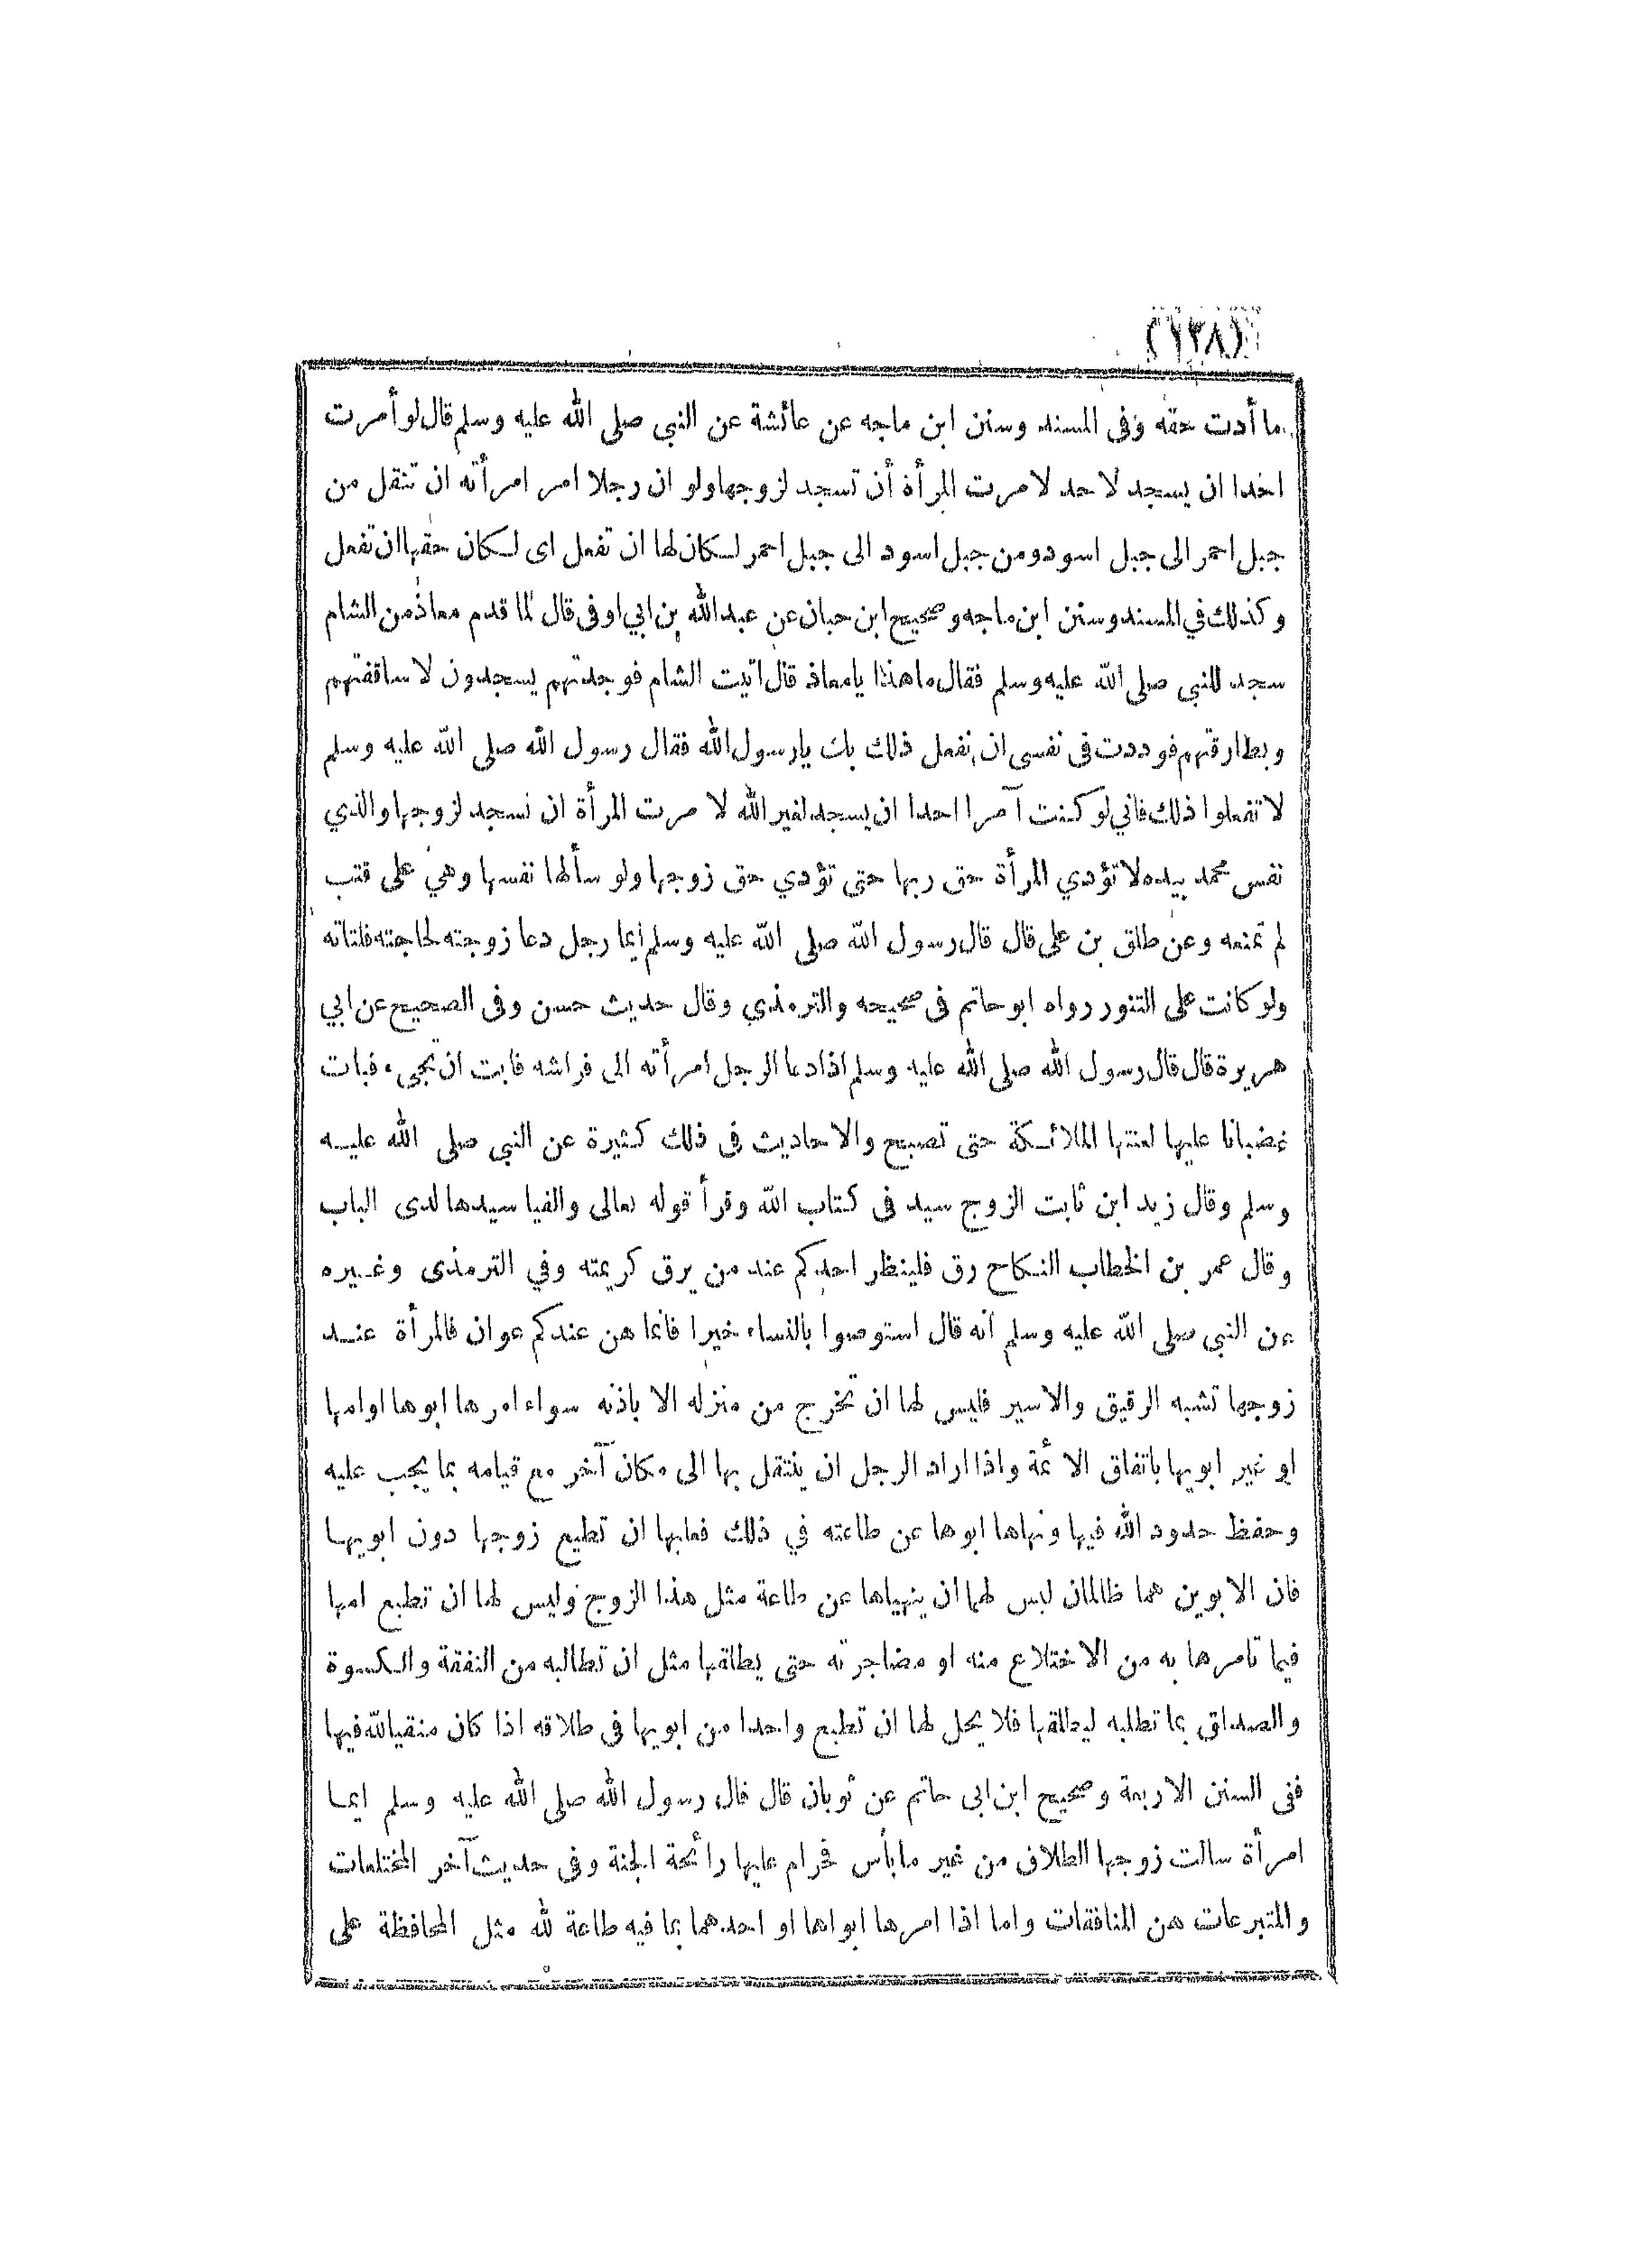 (١٣٨)
ما أدت حقه وفى المسند وسنن ابن ماجه عن عائشة عن النبي صلى الله عليه وسلم قال لو أمرت
احدا ان يسجد لاحد لامرت المرأة أن تسجد لزوجها ولو ان رجلا امر امرأته ان تنقل من
جبل احمر الى جبل اسود ومن جبل اسود الى جبل احمر لكان لها ان تفعل اى لكان حقها ان تفعل
وكذلك في المسند وسنن ابن ماجه وصحيح ابن حبان عن عبد الله بن ابي اوفى قال لما قدم معاذ من الشام
سجد للنبي صلى الله عليه وسلم فقال ما هذا يا معاذ قال اتيت الشام فوجدتهم يسجدون لاساقفتهم
وبطارقتهم فوددت فى نفسى ان نفعل ذلك بك يا رسول الله فقال رسول الله صلى الله عليه وسلم
لا تفعلوا ذلك فاني لو كنت آمرا احدا ان يسجد لغير الله لامرت المرأة ان تسجد لزوجها والذي
نفس محمد بيده لا تؤدي المرأة حق ربها حتى تؤدي حق زوجها ولو سألها نفسها وهي على قتب
لم تمنعه وعن طلق بن على قال قال رسول الله صلى الله عليه وسلم ايما رجل دعا زوجته لحاجته فلتاته
ولو كانت على التنور رواه ابو حاتم فى صحيحه والترمذي وقال حديث حسن وفى الصحيح عن ابي
هريرة قال قال رسول الله صلى الله عليه وسلم اذا دعا الرجل امرأته الى فراشه فابت ان تجىء فبات
غضبانا عليها لعنتها الملائكة حتى تصبح والاحاديث فى ذلك كثيرة عن النبي صلى الله عليه
وسلم وقال زيد ابن ثابت الزوج سيد فى كتاب الله وقرأ قوله تعالى والفيا سيدها لدى الباب
وقال عمر بن الخطاب النكاح رق فلينظر احدكم عند من يرق كريمته وفي الترمذى وغيره
عن النبي صلى الله عليه وسلم أنه قال استوصوا بالنساء خيرا فانما هن عندكم عوان فالمرأة عند
زوجها تشبه الرقيق والاسير فليس لها ان تخرج من منزله الا باذنه سواء امرها ابوها او امها
او غير ابويها باتفاق الائمة واذا اراد الرجل ان ينتقل بها الى مكان آخر مع قيامه بما يجب عليه
وحفظ حدود الله فيها ونهاها ابوها عن طاعته في ذلك فعليها ان تطيع زوجها دون ابويها
فان الابوين هما ظالمان ليس لهما ان ينهياها عن طاعة مثل هذا الزوج وليس لها ان تطيع امها
فيما تامرها به من الاختلاع منه او مضاجرته حتى يطلقها مثل ان تطالبه من النفقة والكسوة
والصداق بما تطلبه ليطلقها فلا يحل لها ان تطيع واحدا من ابويها فى طلاقه اذا كان متقيا لله فيها
ففى السنن الاربعة وصحيح ابن ابى حاتم عن ثوبان قال قال رسول الله صلى الله عليه وسلم ايما
امرأة سالت زوجها الطلاق من غير ما بأس فحرام عليها رائحة الجنة وفى حديث آخر المختلعات
والمتبرعات هن المنافقات واما اذا امرها ابواها او احدهما بما فيه طاعة لله مثل المحافظة على